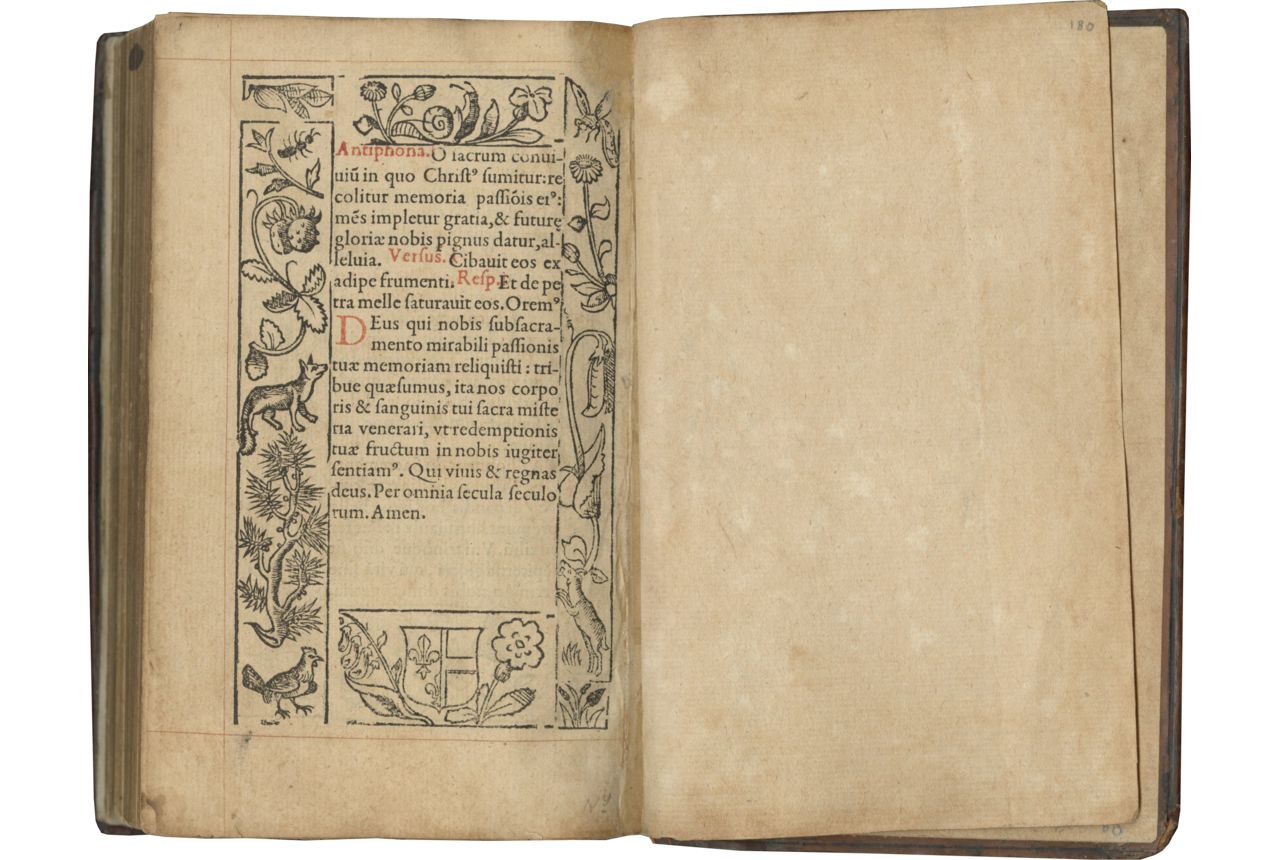 Antiphona. O sacrum conui-
uiũ in quo Christꝰ sumitur: re
colitur memoria passiõis eiꝰ:
mẽs impletur gratia, & futurę
gloriæ nobis pignus datur, al-
leluia. Versus. Cibauit eos ex
adipe frumenti. Resp. Et de pe
tra melle saturauit eos. Oremꝰ
DEus qui nobis subsacra-
mento mirabili passionis
tuæ memoriam reliquisti : tri-
bue quæsumus, ita nos corpo
ris & sanguinis tui sacra miste
ria venerari, vt redemptionis
tuæ fructum in nobis iugiter
sentiamꝰ. Qui viuis & regnas
deus. Per omnia secula seculo
rum. Amen.
180